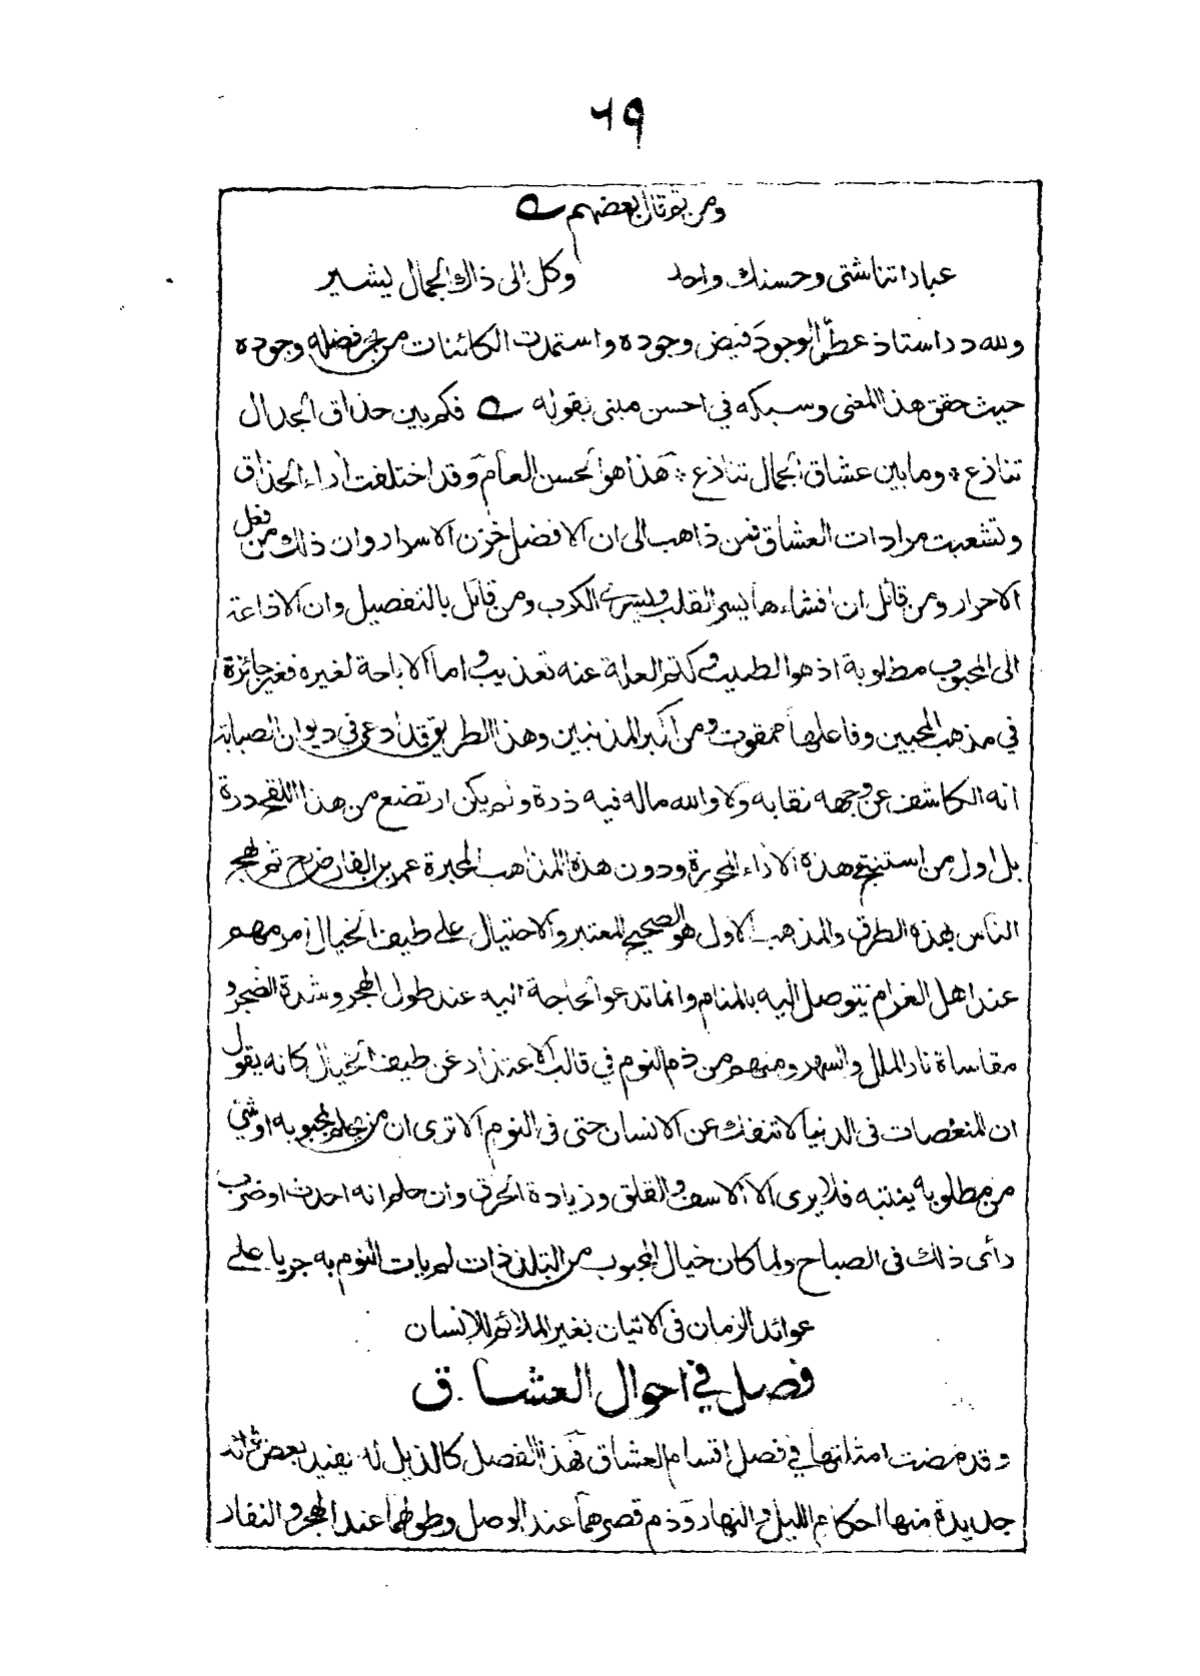 ٦٩
ومن ثم قال بعضهم
عباداتنا شتى وحسنك واحد وكل الى ذاك الجمال يشير
ولله در استاذ عطر الوجود فيض وجوده واستمدت الكائنات من بحر فضله وجوده
حيث حقق هذا المعنى وسبكه في احسن مبنى بقوله فكم بين حذاق الجدال
تنازع * وما بين عشاق الجمال تنازع * هذا هو الحسن العام وقد اختلفت أراء الحذاق
وتشعبت مرادات العشاق فمن ذاهب الى ان الافضل خزن الاسرار وان ذلك من فعل
الاحرار ومن قائل ان افشاءها يسر القلب الكرب ومن قائل بالتفصيل وان الاذاعة
الى المحبوب مطلوبة اذ هو الطبيب وكتم العلة عنه تعذيب واما الاباحة لغيره فغير جائزة
في مذهب المحبين وفاعلها ممقوت ومن اكبر المذنبين وهذا الطريق قد ادعى في ديوان الصبابة
انه الكاشف عن وجهه نقابه ولا والله ماله فيه ذرة ولم يكن ارتضع من هذا اللقح درة
بل اول من استنتج هذه الآراء المحررة ودون هذه المذاهب المحبرة عمر بن الفارض ثم لهج
الناس بهذه الطرق والمذهب الاول هو الصحيح المعتبر والاحتيال على طيف الخيال امر مهم
عند اهل الغرام يتوصل اليه بالمنام وانما تدعو الحاجة اليه عند طول الهجر وشدة الضجر و
مقاساة نار الملل والسهر ومنهم من ذم النوم في قالب الاعتذار عن طيف الخيال كانه يقول
ان المنغصات في الدنيا لا تنفك عن الانسان حتى في النوم الا ترى ان من حلم بمحبوبه او شئ
من مطلوبه ينتبه فلا يرى الا الاسف والقلق وزيادة الحرق وان حلم انه احدث او ضرب
رأى ذلك في الصباح ولما كان خيال المحبوب من التلذذات لم يات النوم به جريا على
عوائد الزمان في الاتيان بغير الملائم للانسان
فصل في احوال العشاق
وقد مضت امثلتها في فصل اقسام العشاق فهذا الفصل كالذيل له يفيد بعض
جديدة منها احكام الليل والنهار وذم قصرهما عند الوصل وطولهما عند الهجر والنفار